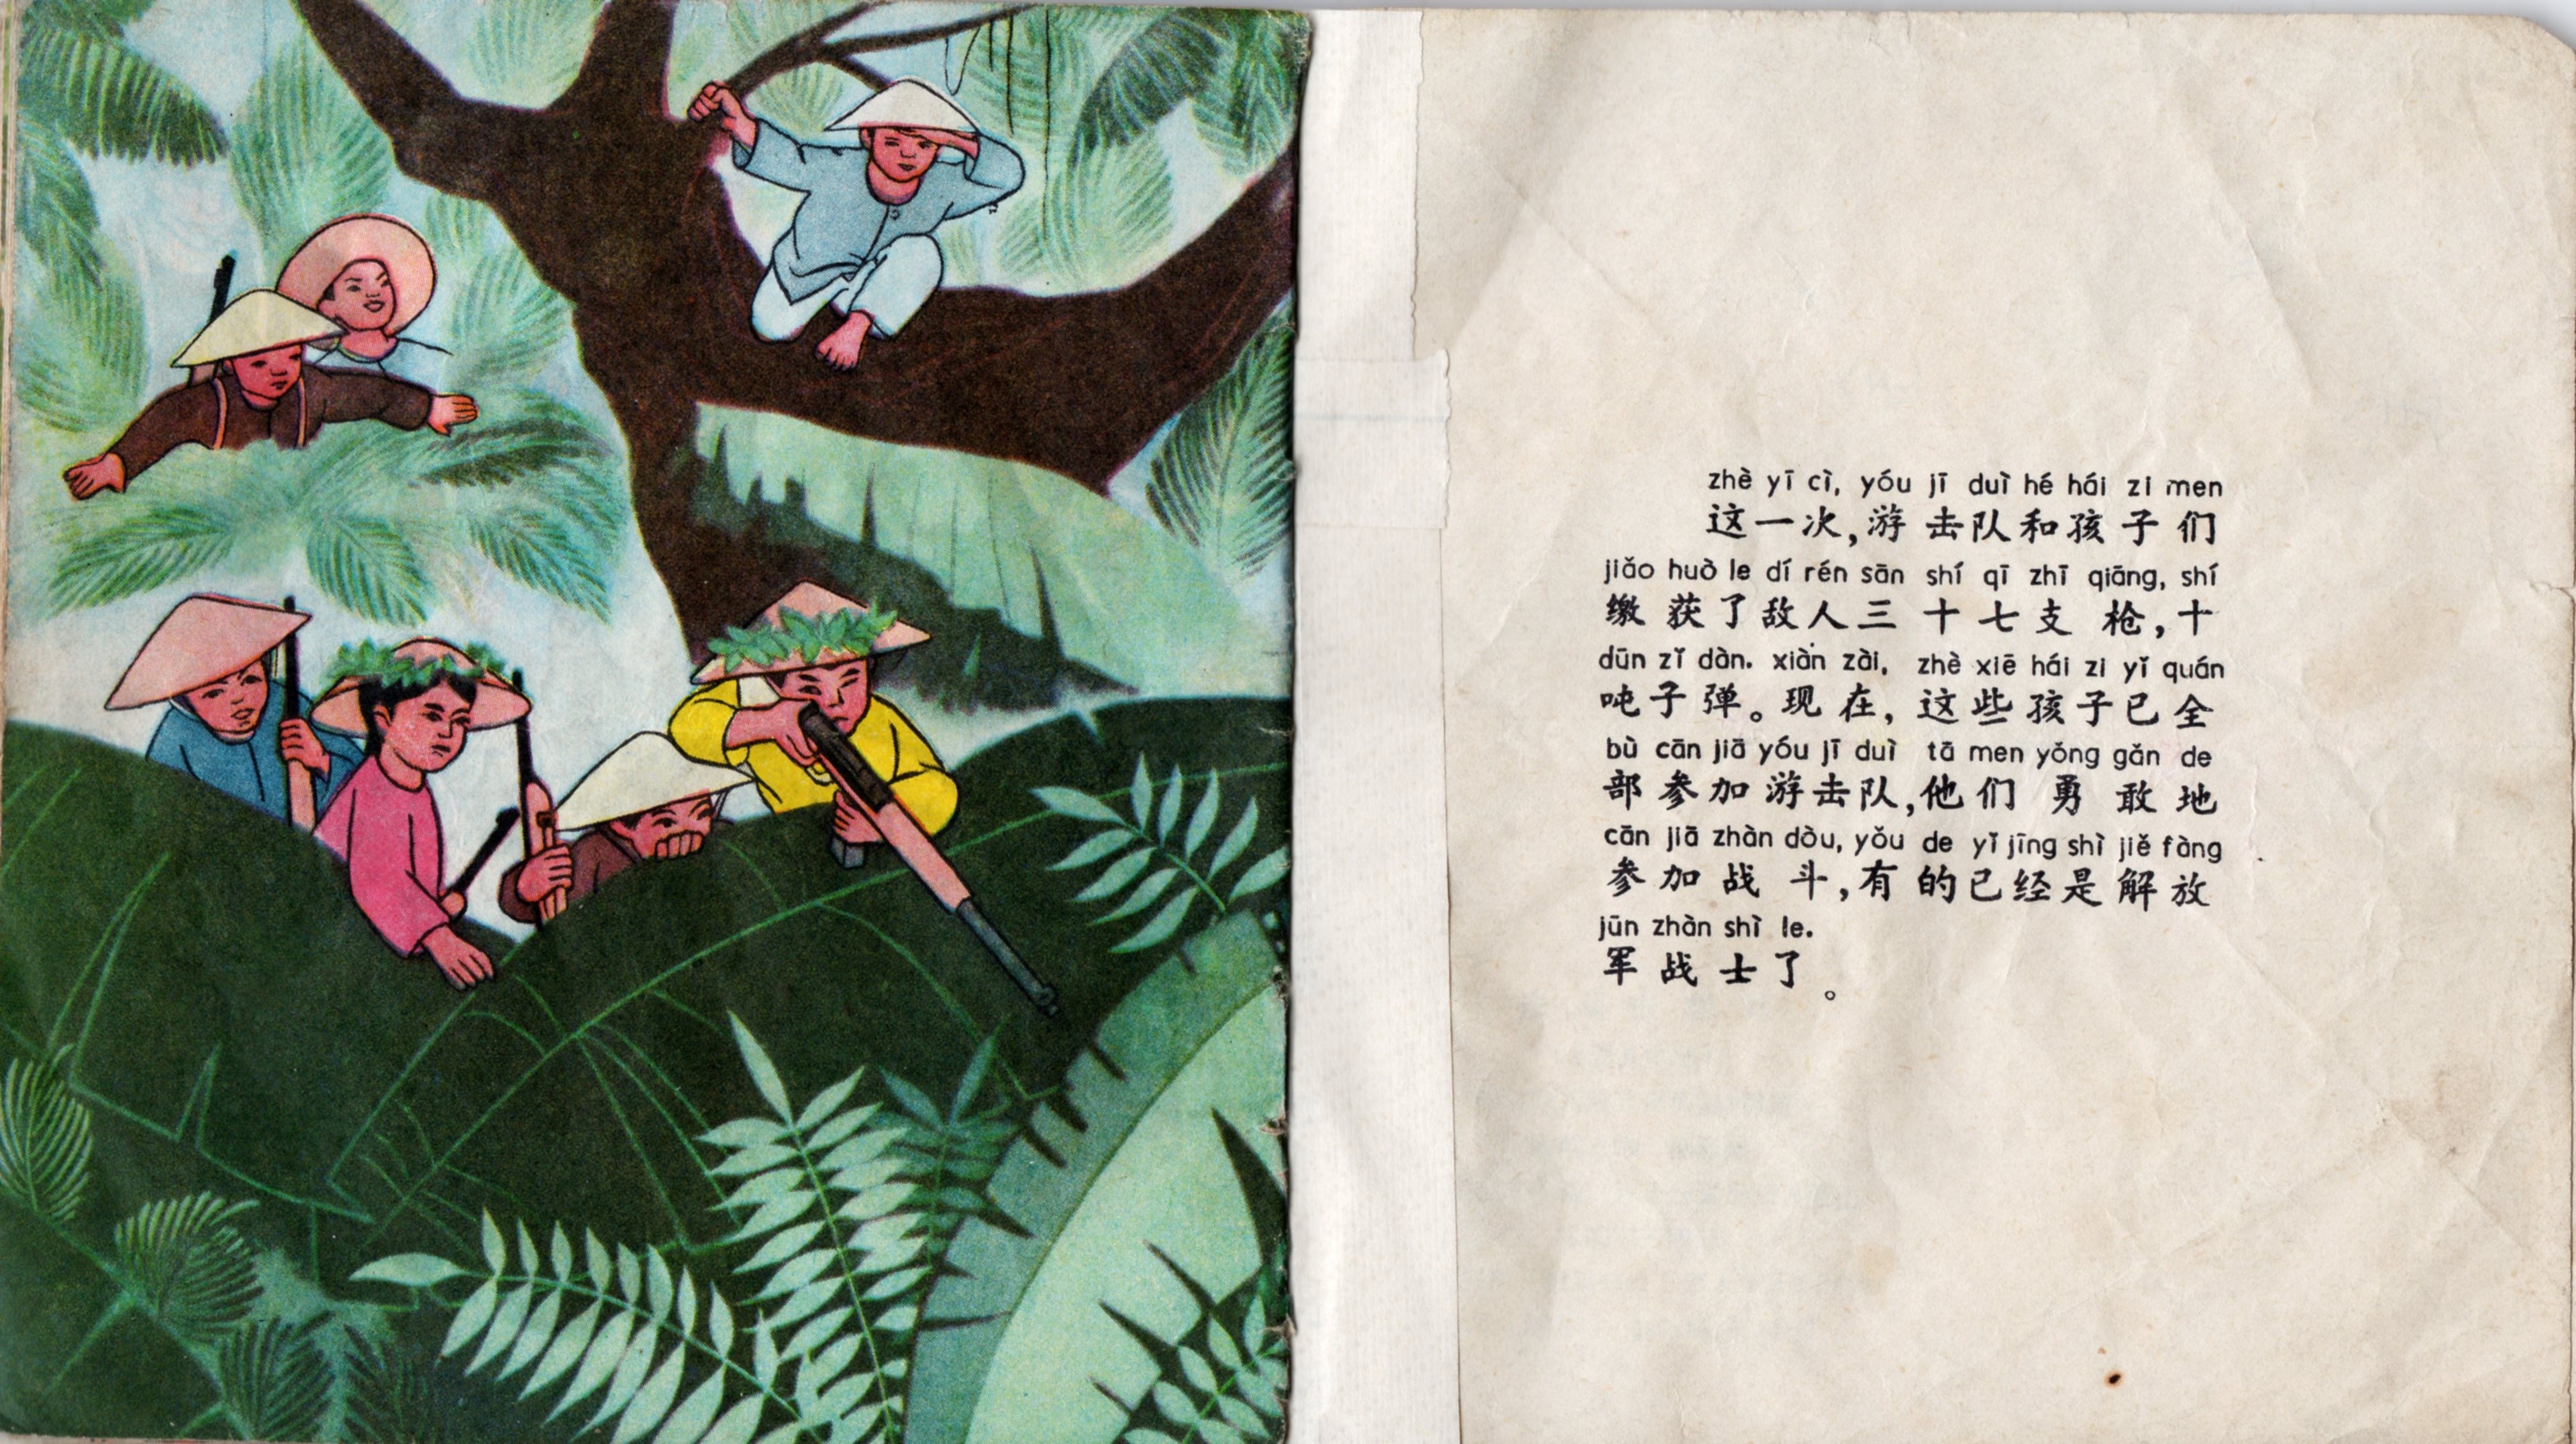 zhè yī cì, yóu jī duì hé hái zi men
这一次,游击队和孩子们
jiǎo huò le dí rén sān shí qī zhī qiāng, shí
缴获了敌人三十七支枪,十
dūn zǐ dàn. xiàn zài, zhè xiē hái zi yǐ quán
吨子弹。现在,这些孩子已全
bù cān jiā yóu jī duì tā men yǒng gǎn de
部参加游击队,他们勇敢地
cān jiā zhàn dòu, yǒu de yǐ jīng shì jiě fàng
参加战斗,有的已经是解放
jūn zhàn shì le.
军战士了。